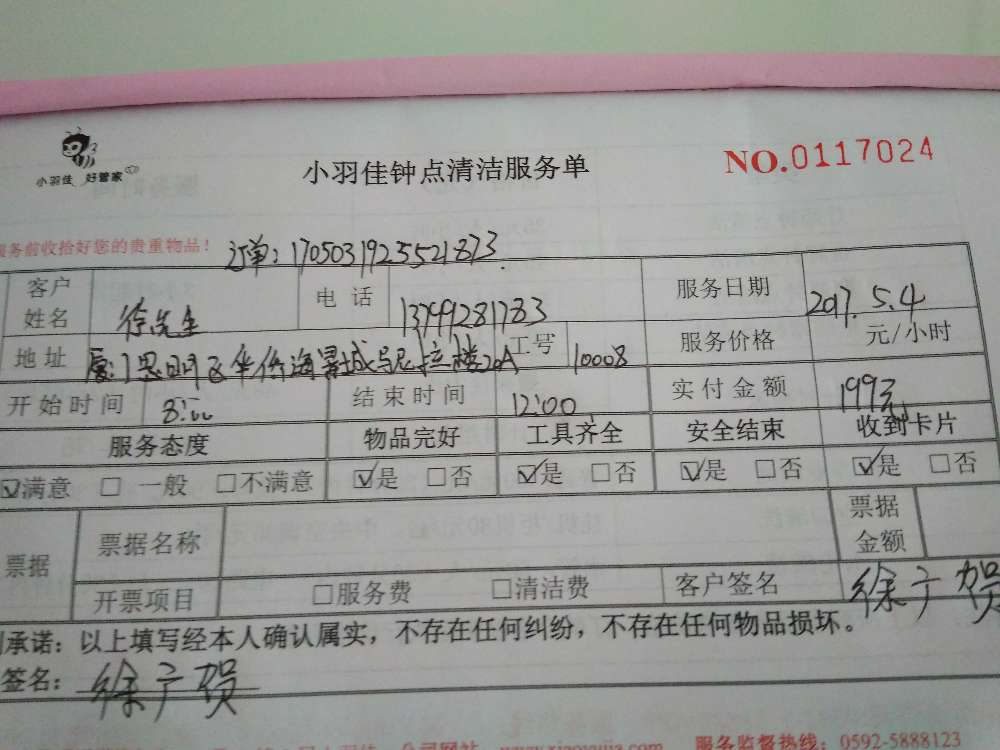 小羽佳 好管家
小羽佳钟点清洁服务单
NO.0117024
服务前收拾好您的贵重物品！
订单：1705031925521873
客户姓名 徐先生 电话 13799281783 服务日期 2017.5.4
地址 厦门思明区华侨海景城马尼拉楼20A 工号 10008 服务价格 元/小时
开始时间 8:00 结束时间 12:00 实付金额 199元
服务态度 物品完好 工具齐全 安全结束 收到卡片
☑满意 □一般 □不满意 ☑是 □否 ☑是 □否 ☑是 □否 ☑是 □否
票据 票据名称 票据金额
开票项目 □服务费 □清洁费 客户签名 徐广贺
承诺：以上填写经本人确认属实，不存在任何纠纷，不存在任何物品损坏。
签名：徐广贺
服务监督热线：0592-5888123